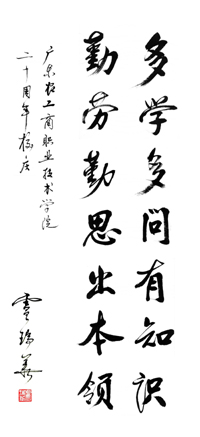 多学多问有知识
勤劳勤思出本领
广东农工商职业技术学院
二十周年校庆